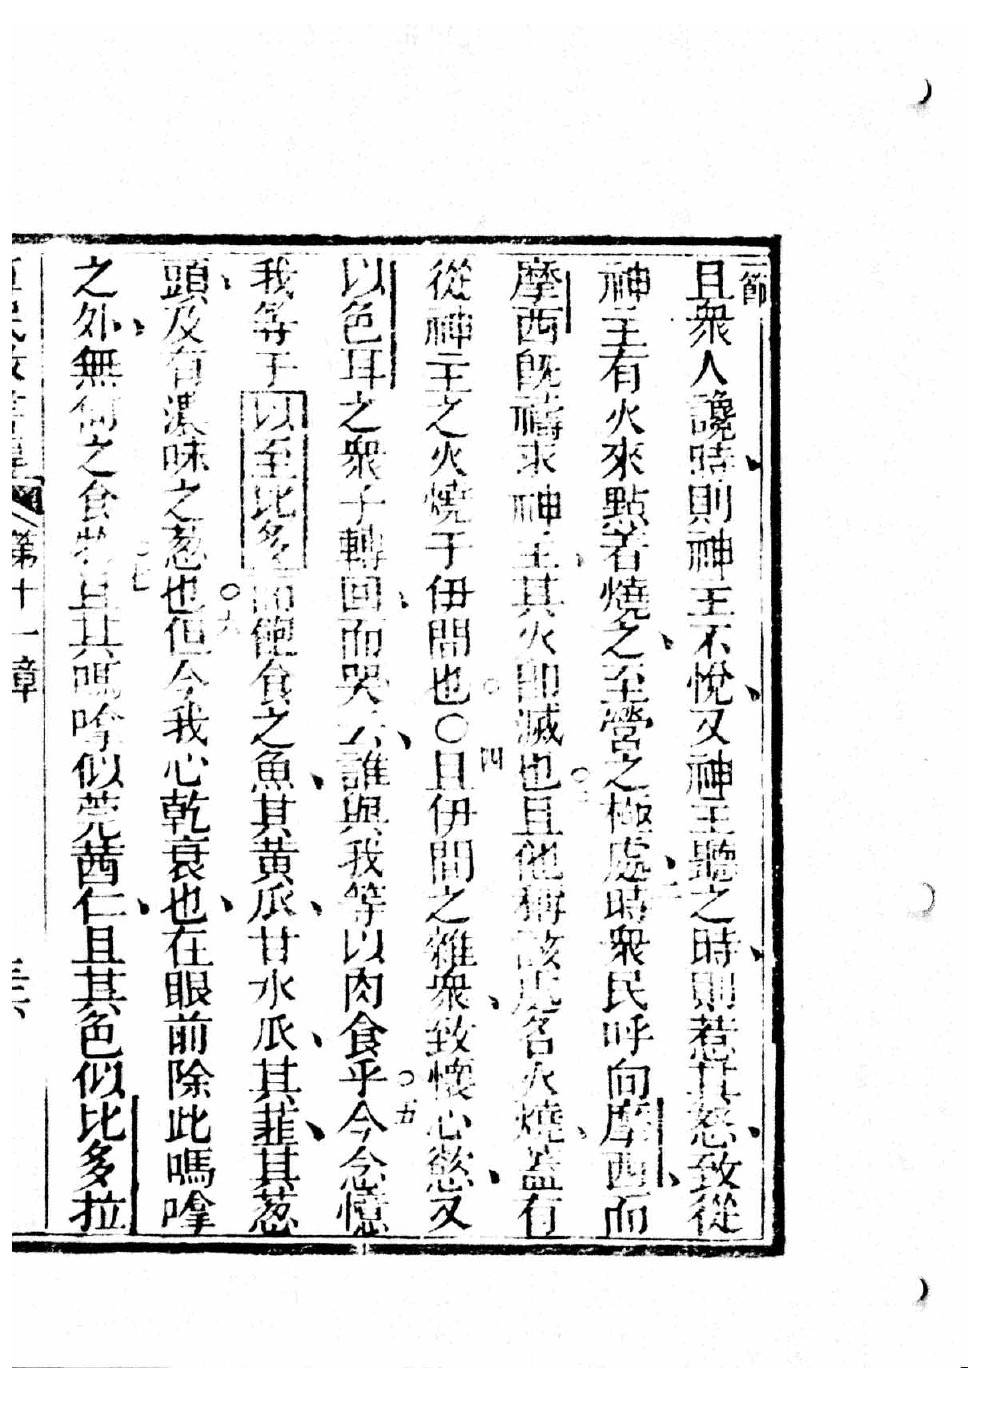 一節
且衆人讒時則神王不悅又神王聽之時則惹其怒致從
神王有火來點着燒之至營之極處二時衆民呼向摩西而
摩西旣禱求神王其火卽滅也○三且他稱該處名火燒蓋有
從神王之火燒于伊間也○四○且伊間之雜衆致懷心慾又
以色耳之衆子轉回而哭云誰與我等以肉食乎○五今念憶
我等于以至比多而飽食之魚其黃瓜甘水瓜其韮其葱
頭及有濃味之葱也○六但今我心乾衰也在眼前除此嗎嗱
之外無何之食物○七且其嗎嗱似莞茜仁且其色似比多拉
第十一章